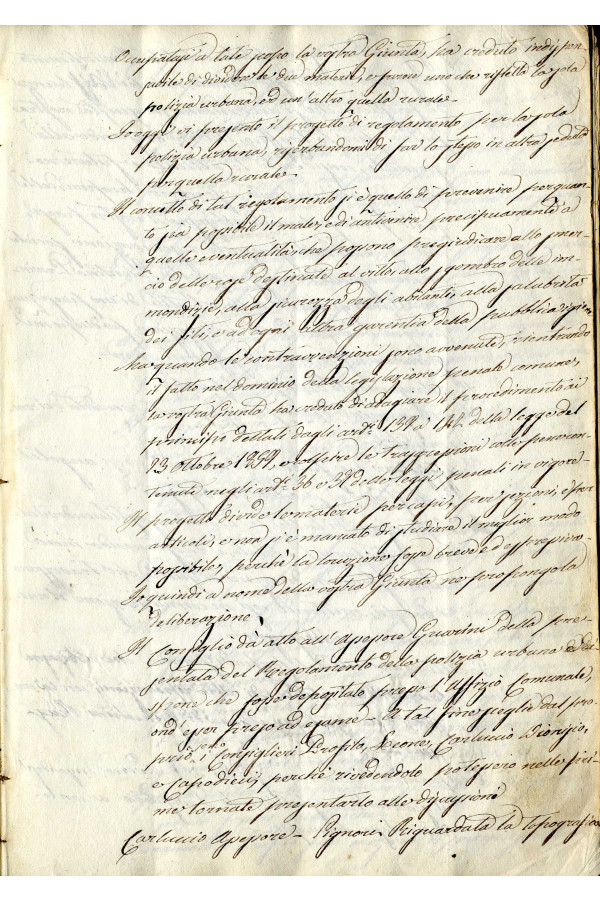 Occupatasi a tale scopo la vostra Giunta, ha creduto indispen-
sabile di dividere le due materie, e farne uno che rifletta la sola
polizia urbana, ed un'altro quella rurale.
Io oggi vi presento il progetto di regolamento per la sola
polizia urbana, riserbandomi di far lo stesso in altra seduta
per quella rurale.
Il concetto di tal regolamento si è quello di prevenire per quan-
to sia possibile il male, e di antivenire precipuamente a
quelle eventualità, che possono pregiudicare allo smer-
cio delle cose destinate al vitto, allo sgombro delle im-
mondizie, alla sicurezza degli abitanti, alla salubrità
dei siti, e ad ogni altra garentia della pubblica igiene
Ma quando le contravvenzioni sono avvenute, rientrando
il fatto nel dominio della legislazione penale comune,
la vostra Giunta ha creduto di adagiare il procedimento ai
principi dettati dagli art.i 139 a 142 della legge del
23 ottobre 1859, e colpire le trasgressioni colle pene con-
tenute negli art.i 36 e 39 delle leggi penali in vigore
Il progetto divide le materie per capi, per sezioni, e per
articoli, e non si è mancato di studiare il miglior modo
possibile, perchè la locuzione fosse breve ed espressiva
Io quindi a nome della vostra Giunta ne propongo la
deliberazione
Il Consiglio dà atto all'Assessore Guarini della pre-
sentata del Regolamento della polizia urbana e di-
spone che fosse depositato presso l'Uffizio Comunale,
ond'esser preso ad esame - A tal fine sceglie dal pro-
prio seno i Consiglieri Perfilo, Leone, Carluccio Dionigio,
e Capodieci, perchè rivedendolo potessero nelle pri-
me tornate presentarlo alle discussioni
Carluccio Assessore - Signori, Riguardata la topografica